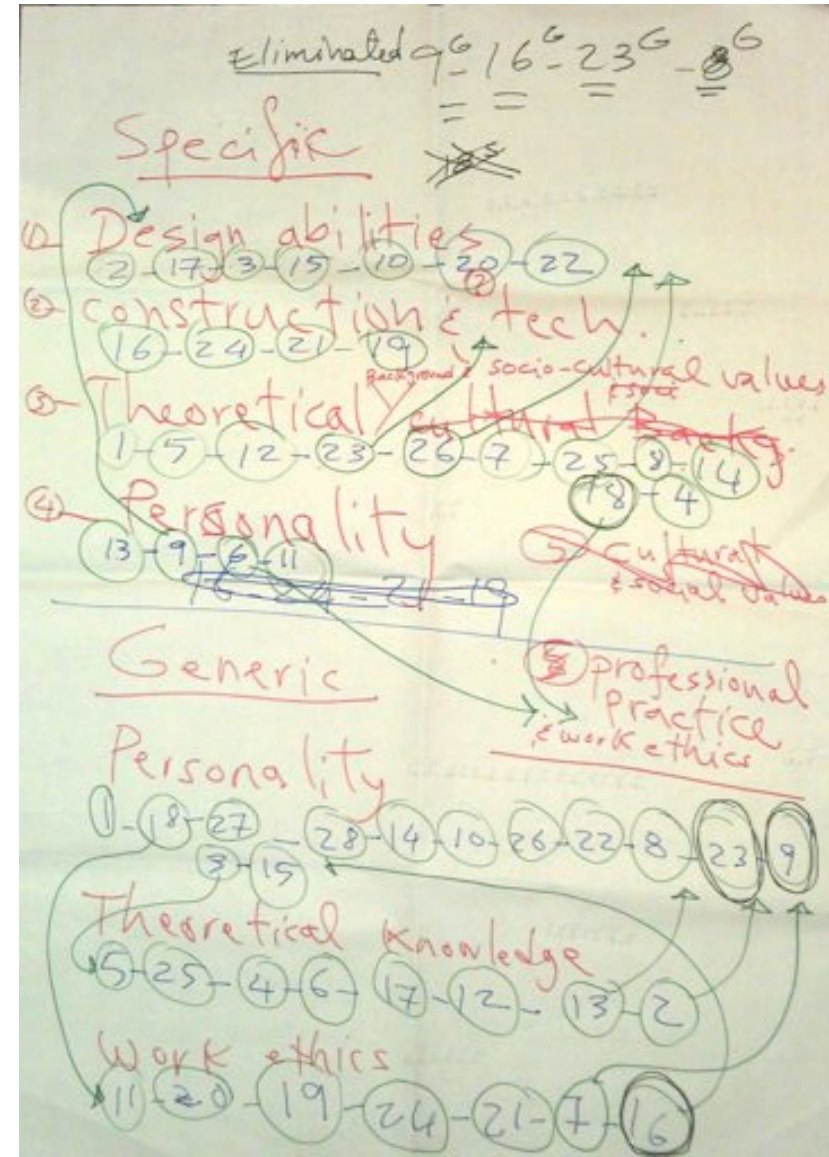 Eliminated 9G - 16G - 23G - 8G
Specific
① Design abilities
2 - 17 - 3 - 15 - 10 - 20 - 22
② construction & tech.
16 - 24 - 21 - 19
Background & socio-cultural values
③ Theoretical cultural Backg.
1 - 5 - 12 - 23 - 26 - 7 - 25 - 8 - 14
18 - 4
④ Personality
13 - 9 - 6 - 11
16 - 24 - 21 - 19
⑤ cultural
& social values
Generic
professional
practice
& work ethics
Personality
1 - 18 - 27 - 28 - 14 - 10 - 26 - 22 - 8 - 23 - 9
3 - 15
Theoretical knowledge
5 - 25 - 4 - 6 - 17 - 12 - 13 - 2
Work ethics
11 - 20 - 19 - 24 - 21 - 7 - 16